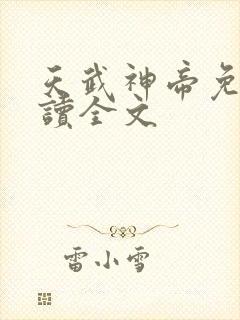 天武神帝免
讀全文
雷小雪